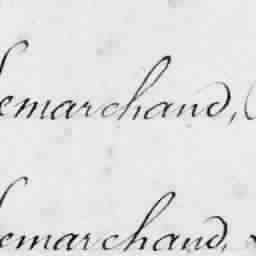 Lemarchand,
Lemarchand,